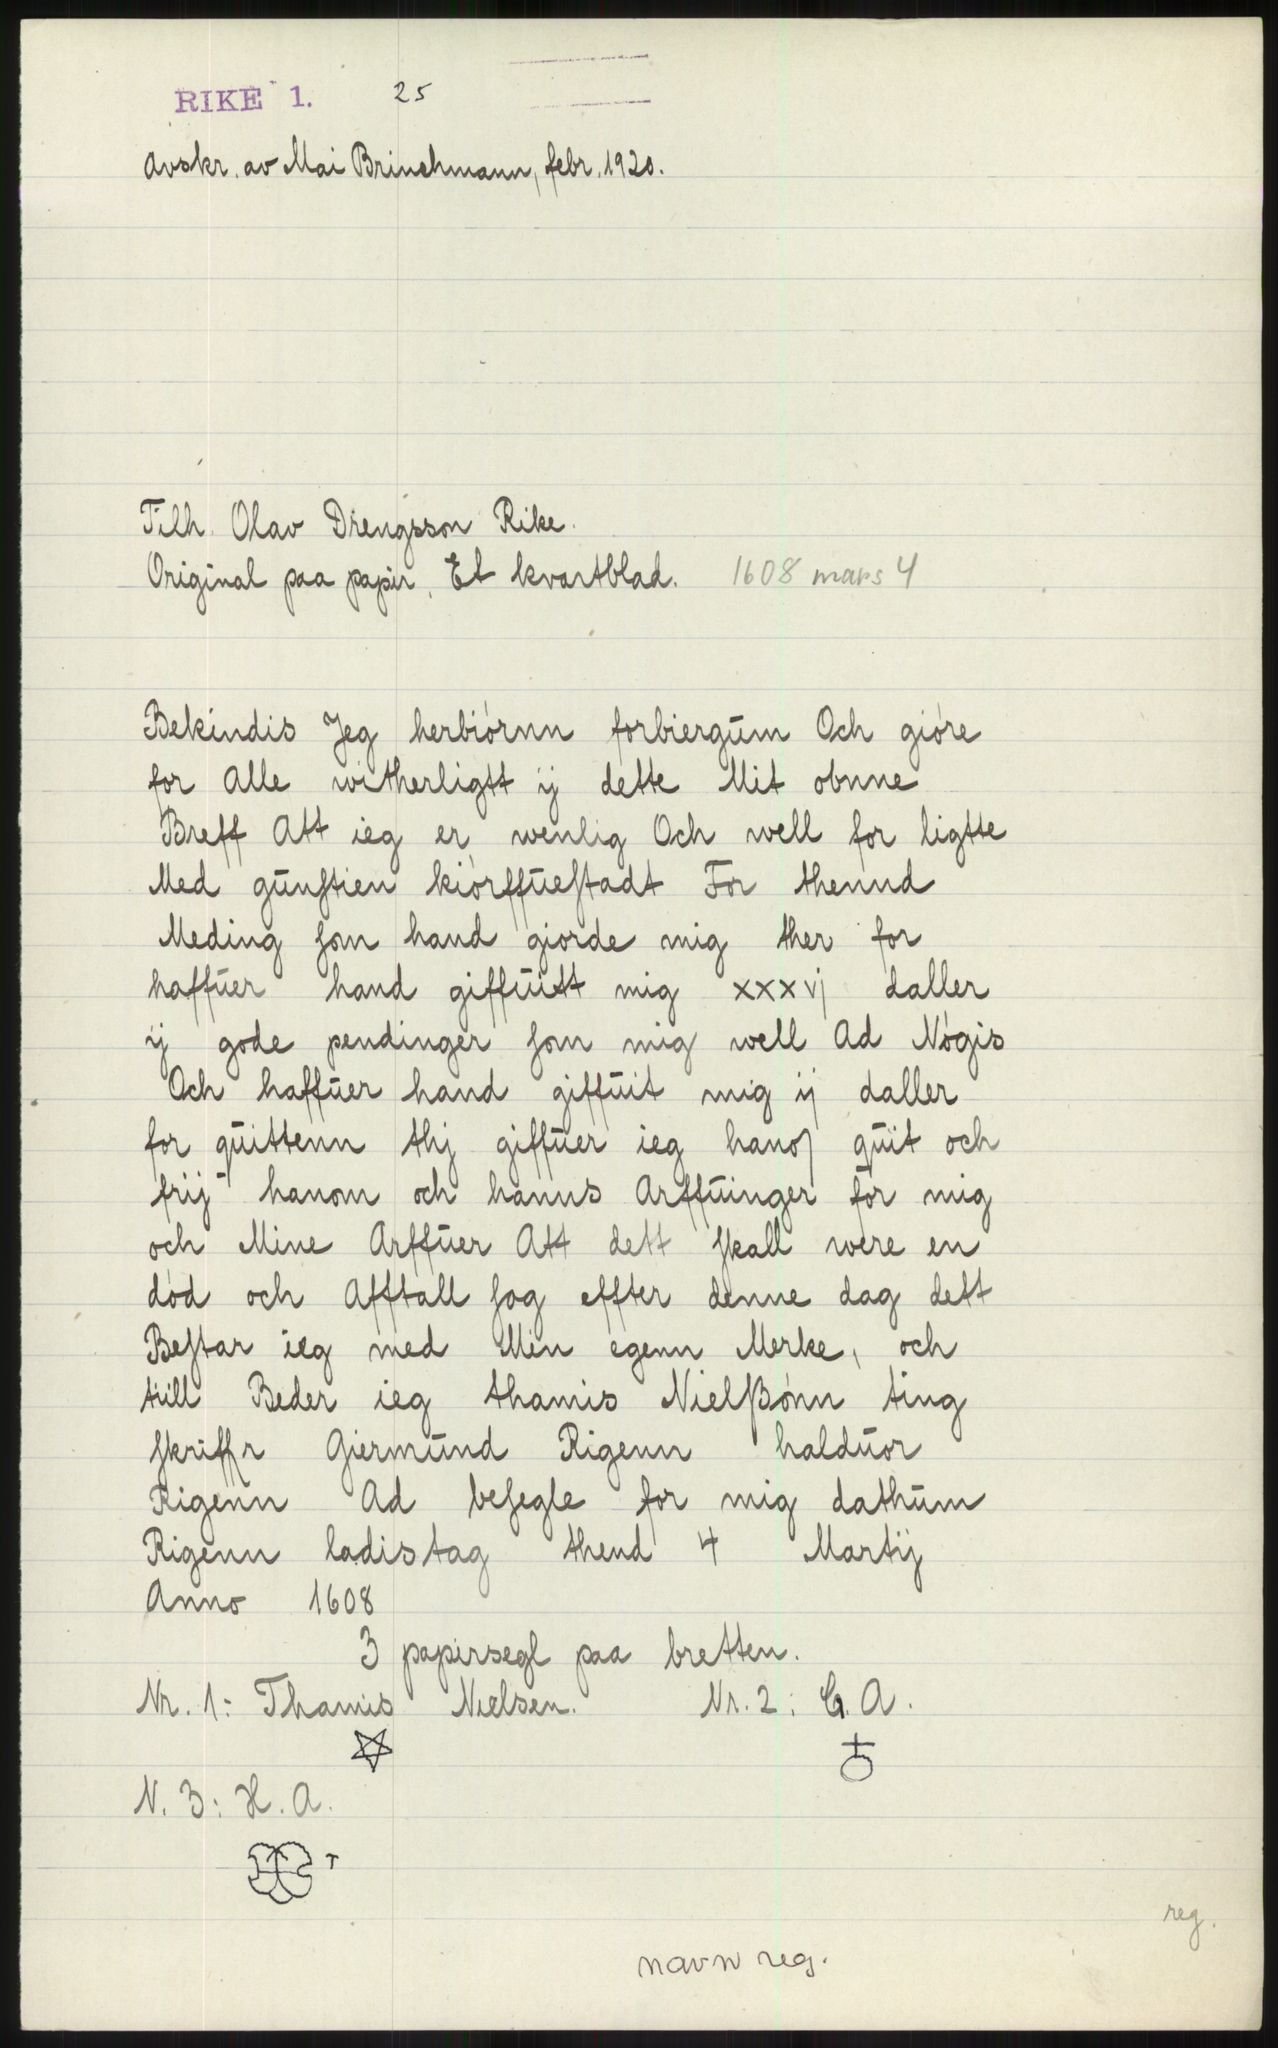 RIKE 1. 25
Avskr. av Mai Brinchmann, febr. 1920.
Tilh. Olav Drengsson Rike.
Original paa papir. Et kvartblad. 1608 mars 4
Bekindis Jeg herbiórnn forbiergūm Och gióre
for Alle witherligtt ij dette Mit obnne
Breff Att ieg er wenlig Och well for ligtte
Med gūnſtien kiórffūeſtadt For thennd
Meding ſom hand giorde mig ther for
haffūer hand giffūitt mig xxxvj daller
ij gode pendinger ſom mig well Ad Nógis
Och haffūer hand giffūit mig ij daller
for qūittenn thj giffūer ieg hanom qūit och
frij hanom och hanns Arffūinger for mig
och Mine Arffūer Att dett ſkall were en
dód och Afftall ſag effter denne dag dett
Beſtar ieg med Min egenn Merke, och
till Beder ieg thamis Nielßónn ting
ſkriffr Giermūnd Rigenn haldūor
Rigenn Ad beſegle for mig dathūm
Rigenn ladistag thend 4 Martij
Anno 1608
3 papirsegl paa bretten.
Nr. 1: Thamis Nielsen. Nr. 2: G. A.
N. 3: H. A.
reg.
navn reg.